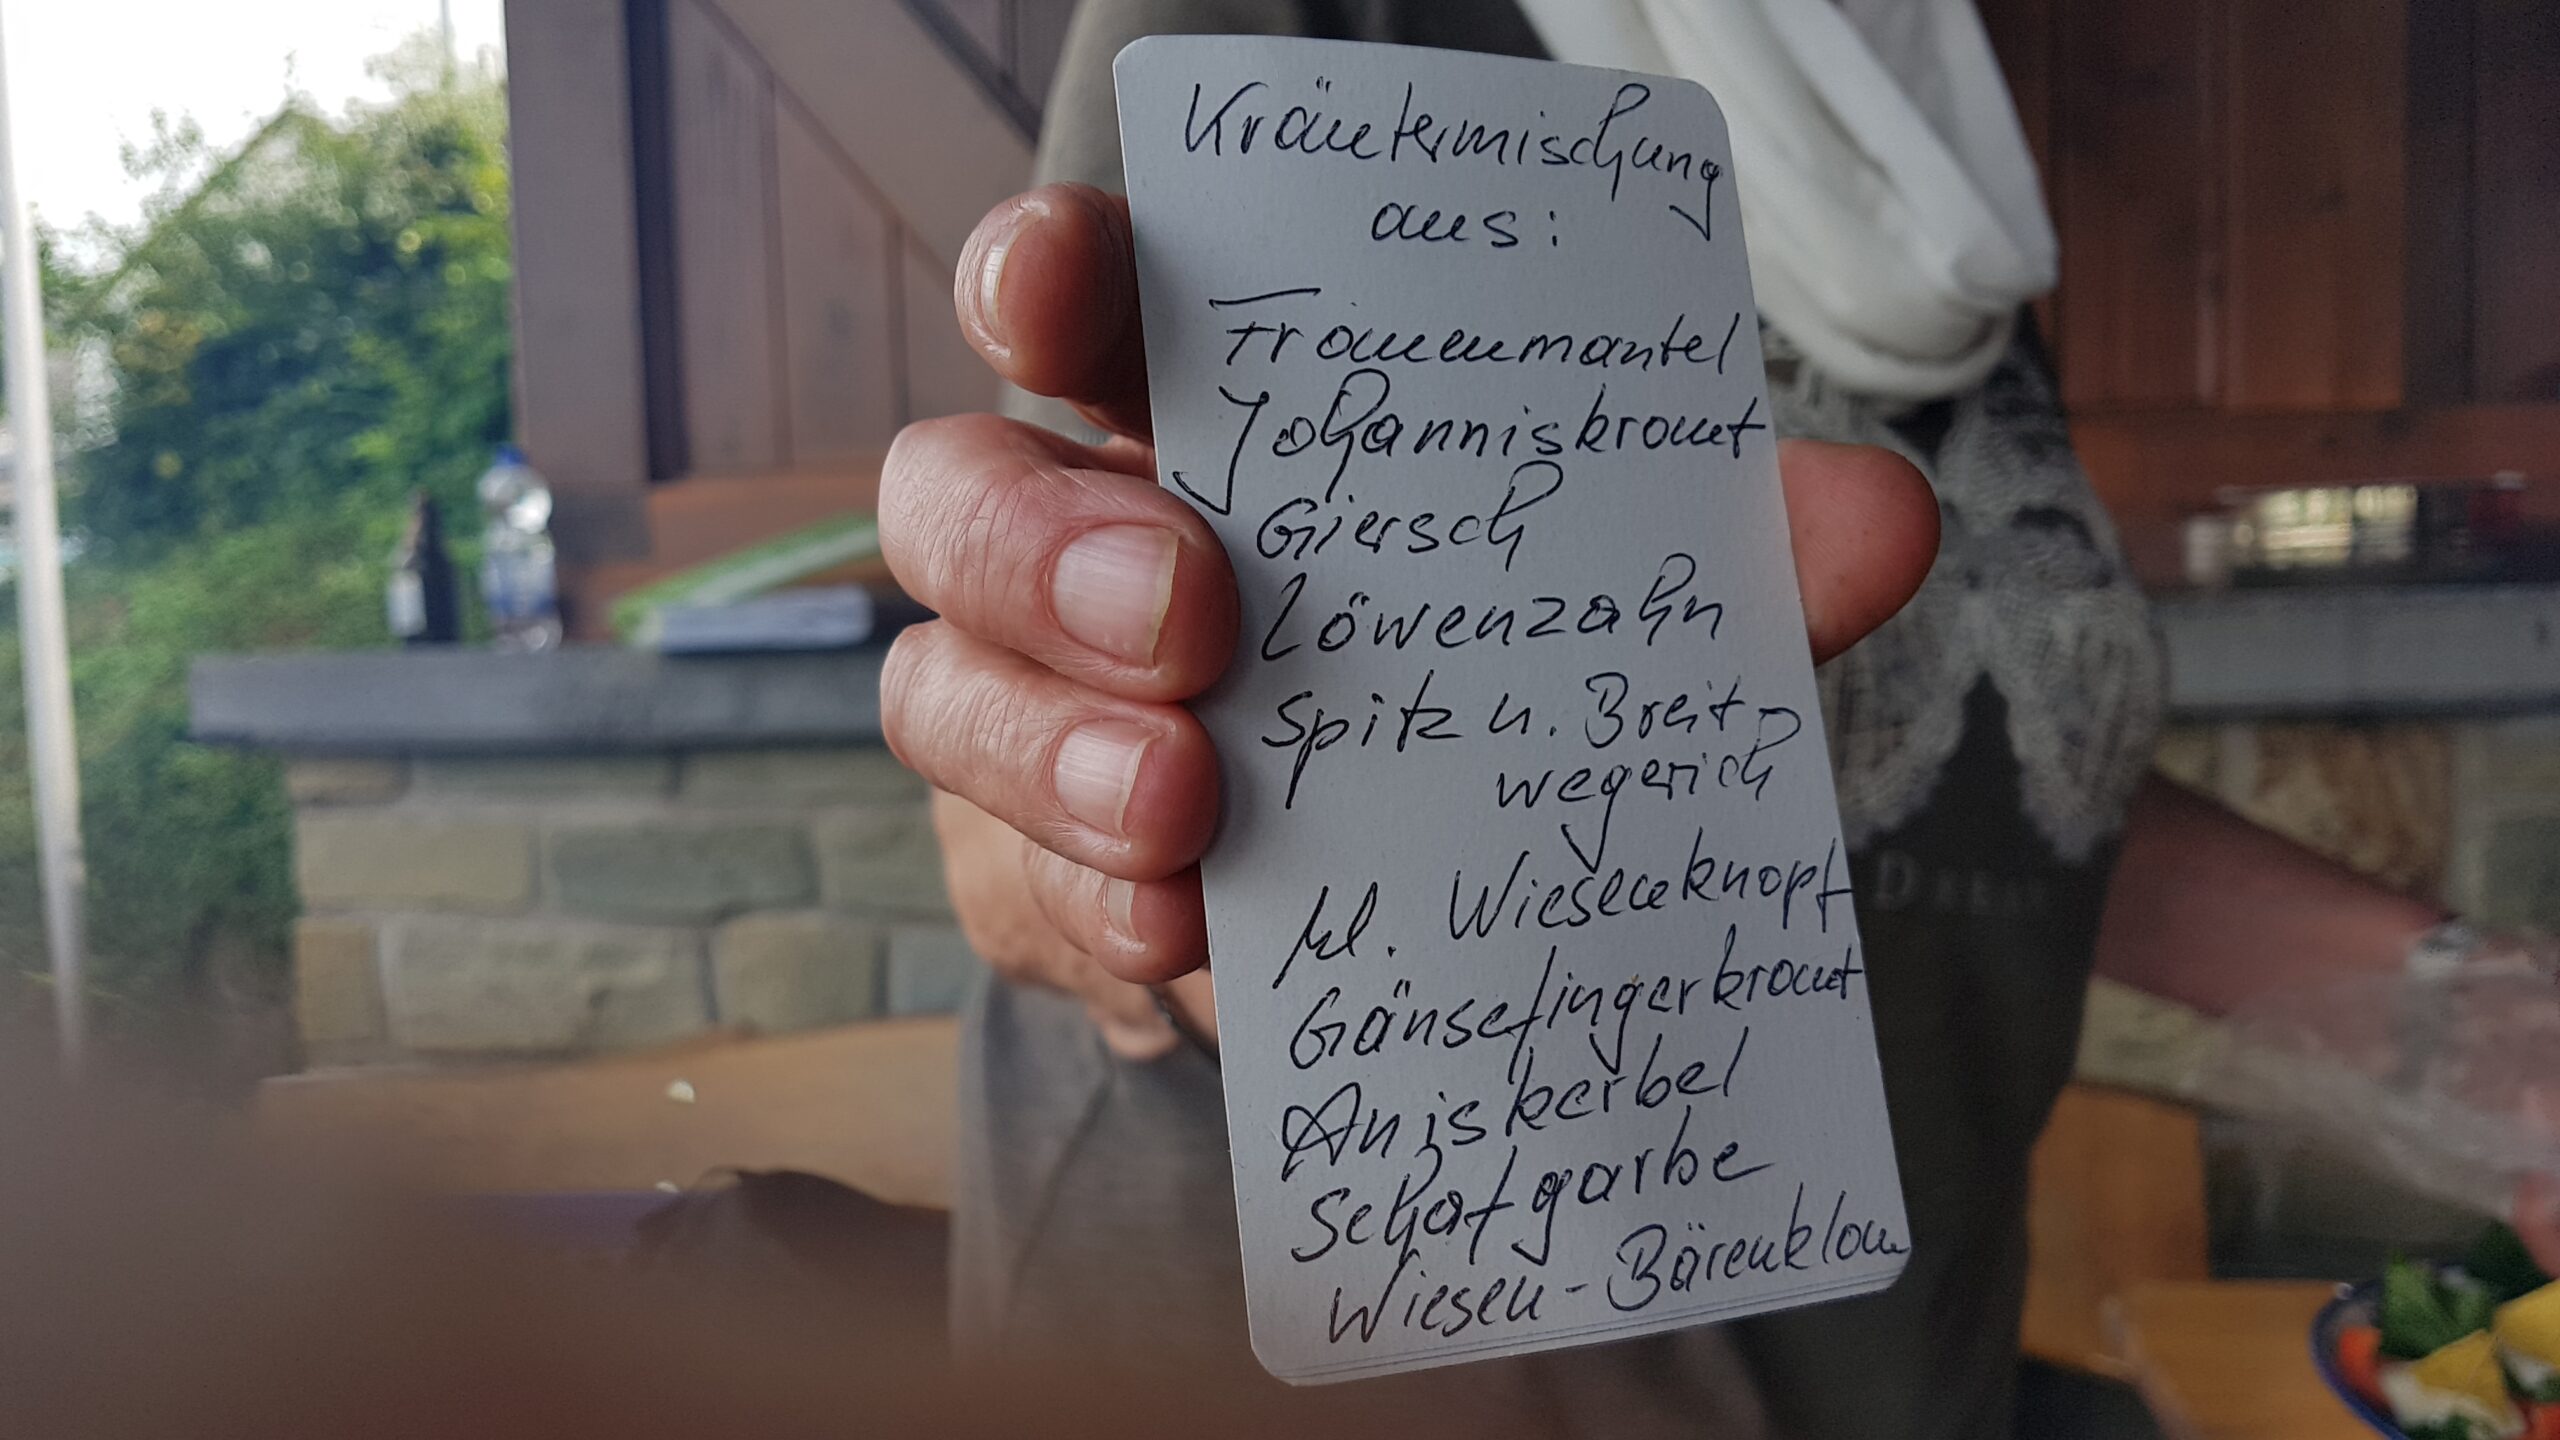 Kräutermischung
aus:
Frauenmantel
Johanniskraut
Giersch
Löwenzahn
Spitz u. Breit
wegerich
kl. Wiesenknopf
Gänsefingerkraut
Aniskerbel
Schafgarbe
Wiesen-Bärenklau